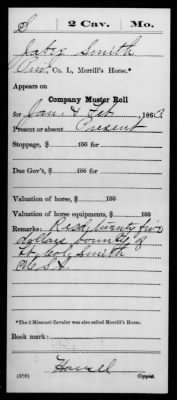 S 2 Cav. Mo.
Smith
Co. L, Merrill's Horse.*
Appears on
Company Muster Roll
for Jan & Feb, 186
Present or absent Present
Stoppage, $ 100 for
Due Gov't, $ 100 for
Valuation of horse, $ 100
Valuation of horse equipments, $ 100
Remarks: Recd twenty five
dollars bounty of
Smith
U.S.A.
*The 2 Missouri Cavalry was also called Merrill's Horse.
Book mark:
Howell
(858) Copyist.